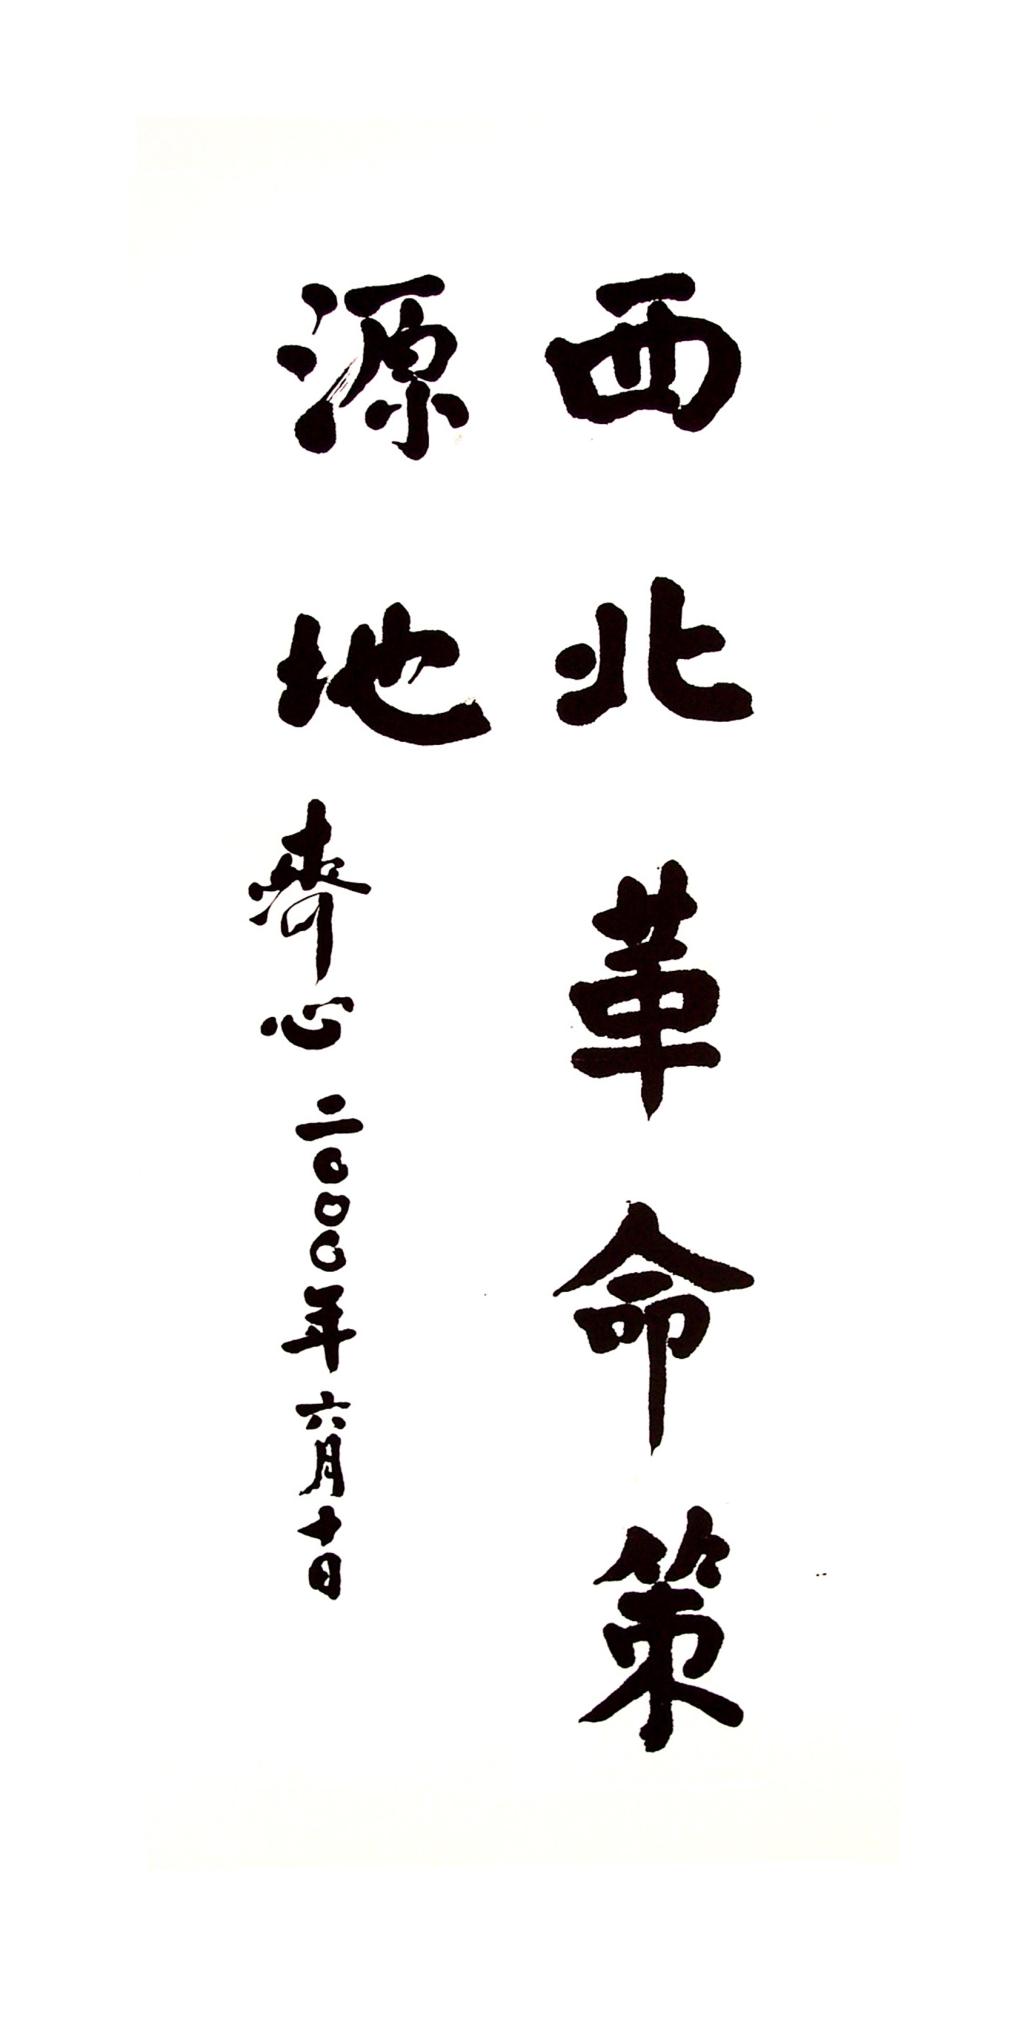 西北革命策
源地
齐心 二〇〇〇年六月十日